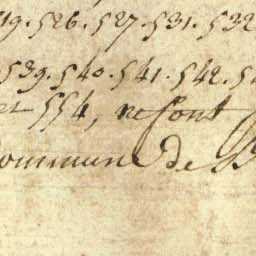 19. 526. 527. 531. 532
539. 540. 541. 542. 5
et 554, ne sont
commune de B